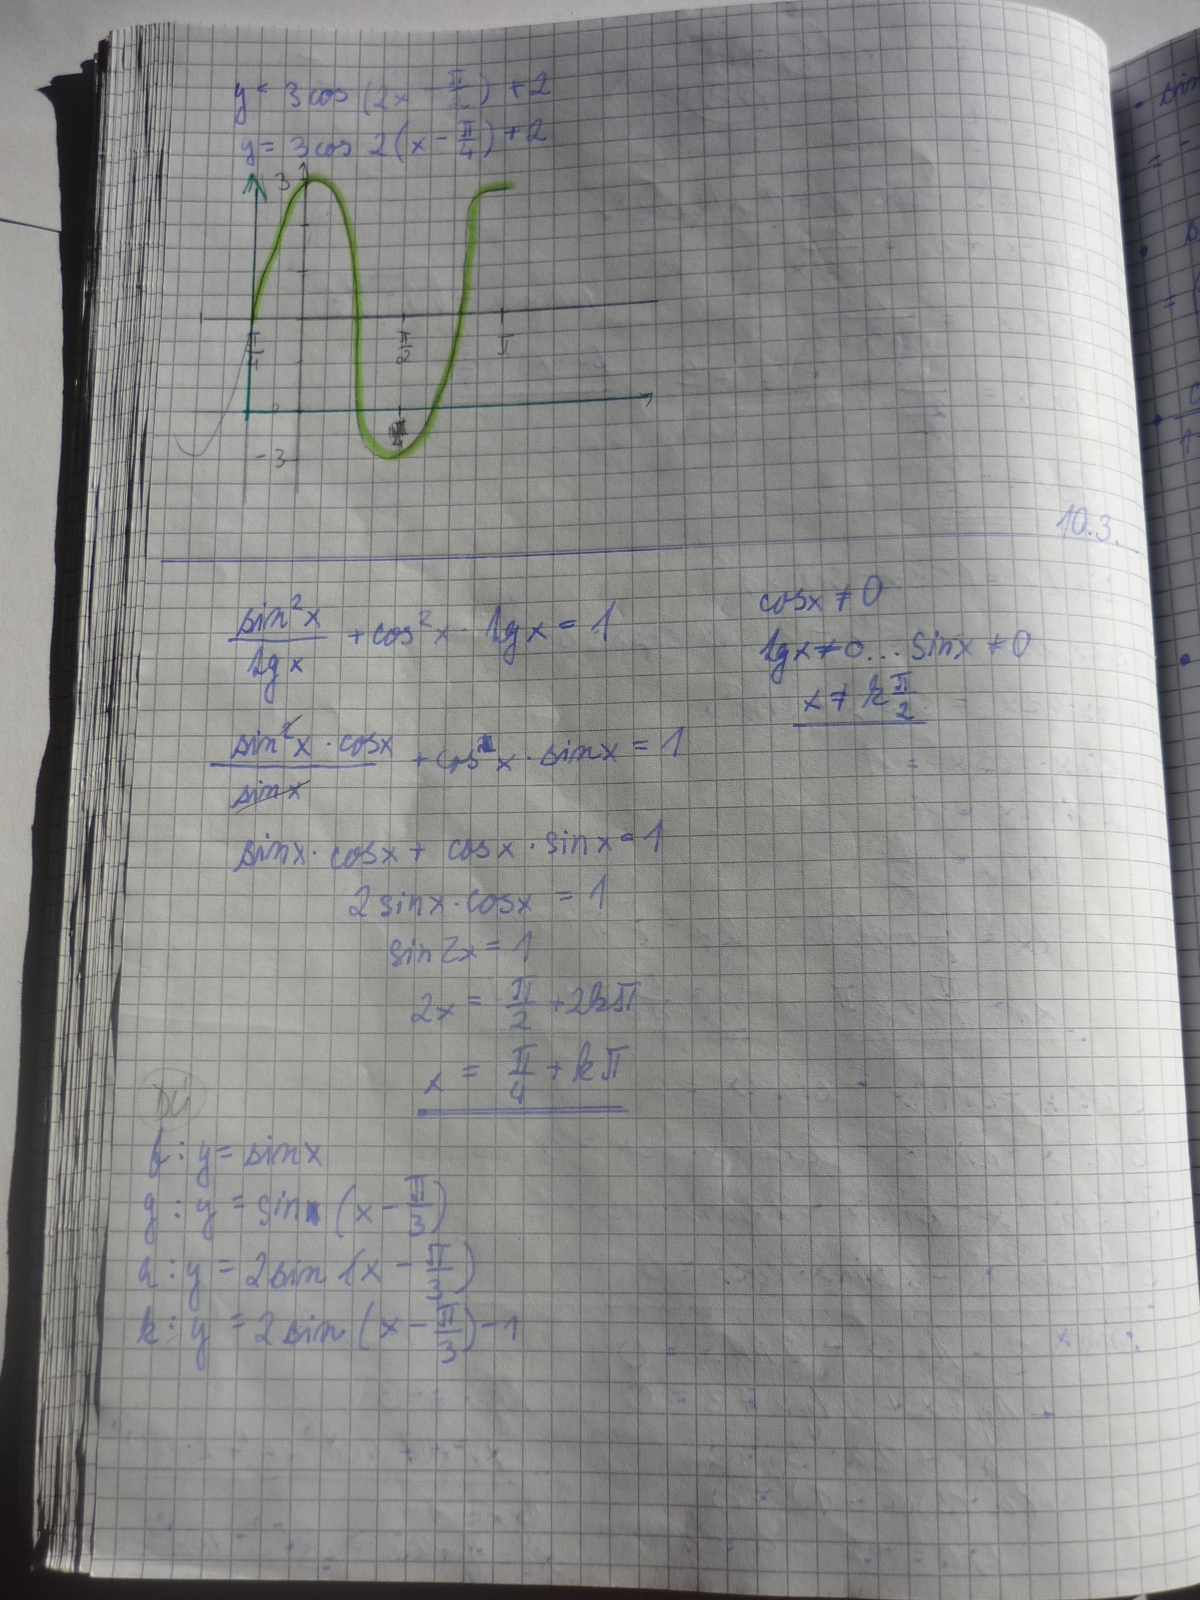 y = 3cos (2x - π/2) + 2
y = 3cos 2(x - π/4) + 2
3
π/4 π/2 π
-3
10.3.
sin²x/tgx + cos²x · tgx = 1
cosx ≠ 0
tgx ≠ 0... sinx ≠ 0
x ≠ k π/2
sin²x · cosx/sinx + cosx · sinx = 1
sinx · cosx + cosx · sinx = 1
2sinx · cosx = 1
sin2x = 1
2x = π/2 + 2kπ
x = π/4 + kπ
DÚ
f: y = sinx
g: y = sin (x - π/3)
h: y = 2sin (x - π/3)
k: y = 2sin (x - π/3) - 1